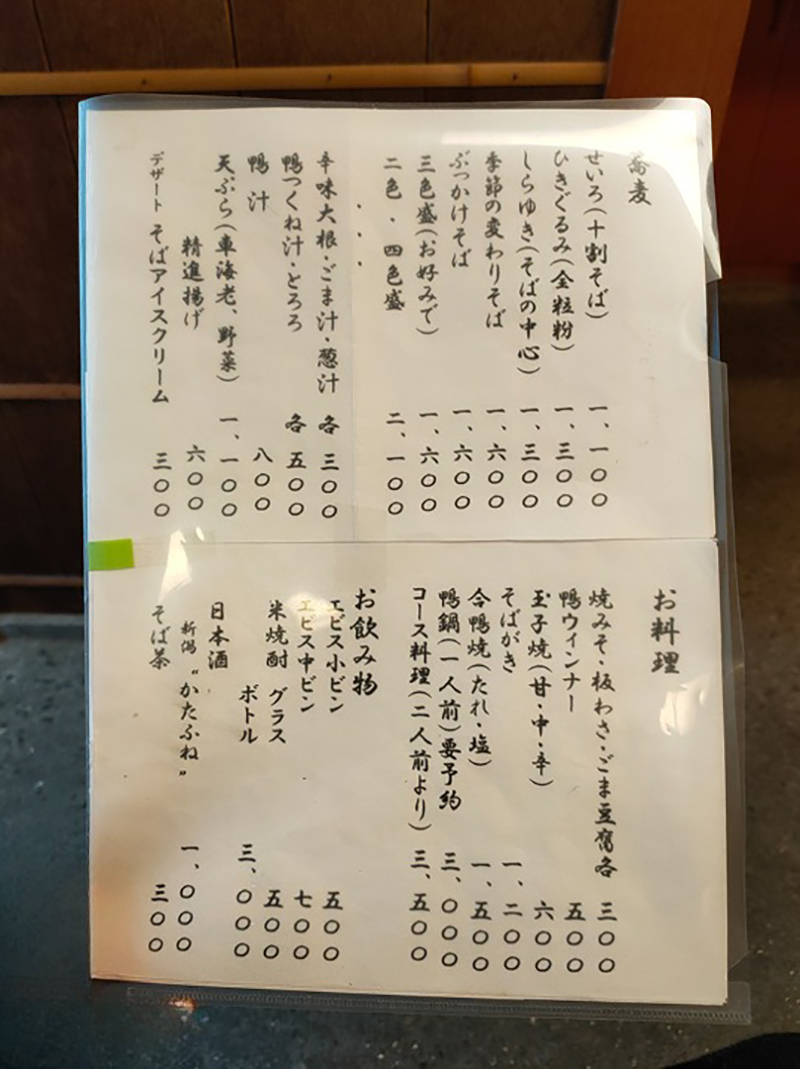 蕎麦
せいろ(十割そば) 一、一〇〇
ひきぐるみ(全粒粉) 一、三〇〇
しらゆき(そばの中心) 一、三〇〇
季節の変わりそば 一、六〇〇
ぶっかけそば 一、六〇〇
三色盛(お好みで) 一、六〇〇
二色・四色盛 二、一〇〇
・・・
辛味大根・ごま汁・葱汁 各 三〇〇
鴨つくね汁・とろろ 各 五〇〇
鴨汁 八〇〇
天ぷら(車海老、野菜) 一、一〇〇
精進揚げ 六〇〇
デザート そばアイスクリーム 三〇〇
お料理
焼みそ・板わさ・ごま豆腐各 三〇〇
鴨ウィンナー 五〇〇
玉子焼(甘・中・辛) 六〇〇
そばがき 一、二〇〇
合鴨焼(たれ・塩) 一、五〇〇
鴨鍋(一人前)要予約 三、〇〇〇
コース料理(二人前より) 三、五〇〇
お飲み物
エビス小ビン 五〇〇
エビス中ビン 七〇〇
米焼酎 グラス 五〇〇
ボトル 三、〇〇〇
日本酒
新潟 “かたふね” 一、〇〇〇
そば茶 三〇〇